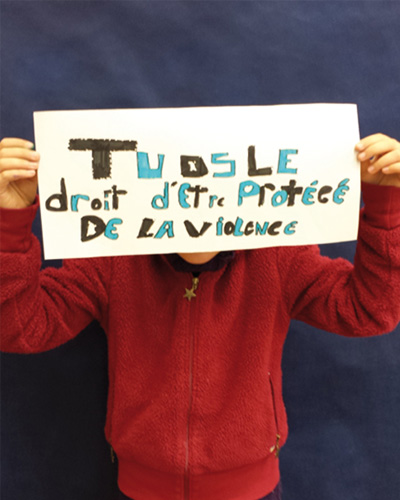 TU OS LE
droit d'être Protégé
DE LA Violence